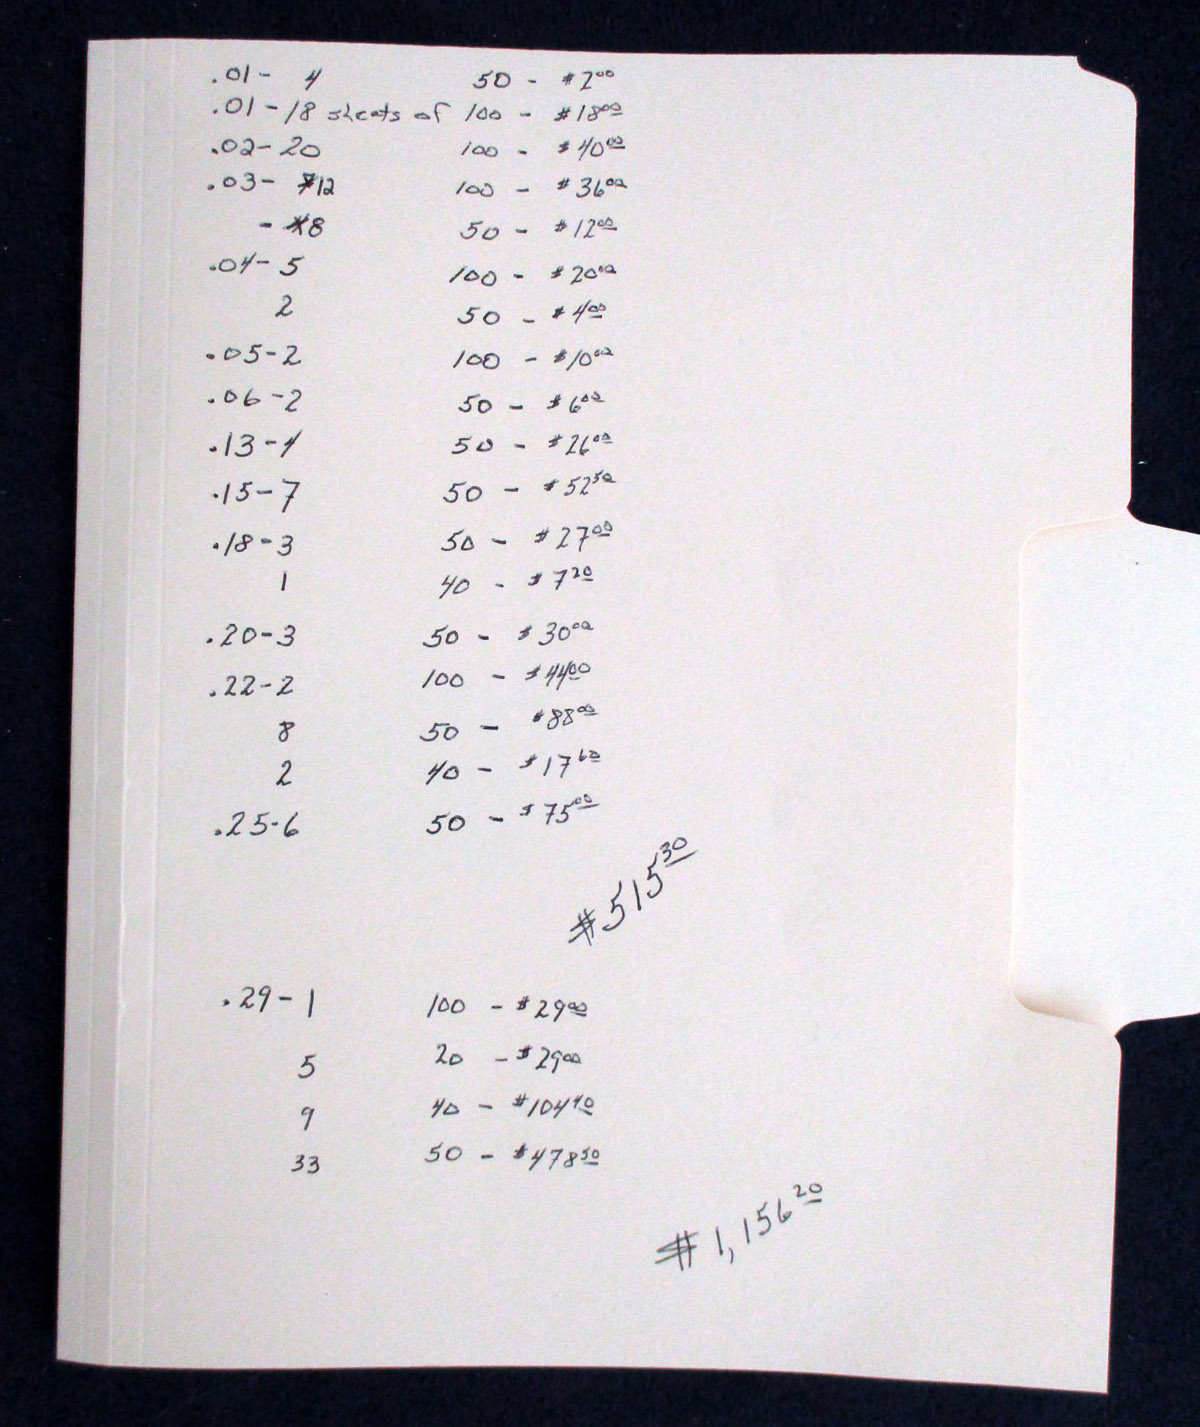 .01- 4 50 - $2.00
.01-18 sheets of 100 - $18.00
.02-20 100 - $40.00
.03- 12 100 - $36.00
- 8 50 - $12.00
.04-5 100 - $20.00
2 50 - $4.00
.05-2 100 - $10.00
.06-2 50 - $6.00
.13-4 50 - $26.00
.15-7 50 - $52.50
.18-3 50 - $27.00
1 40 - $7.20
.20-3 50 - $30.00
.22-2 100 - $44.00
8 50 - $88.00
2 40 - $17.60
.25-6 50 - $75.00
$515.30
.29-1 100 - $29.00
5 20 - $29.00
9 40 - $104.40
33 50 - $478.50
$1,156.20